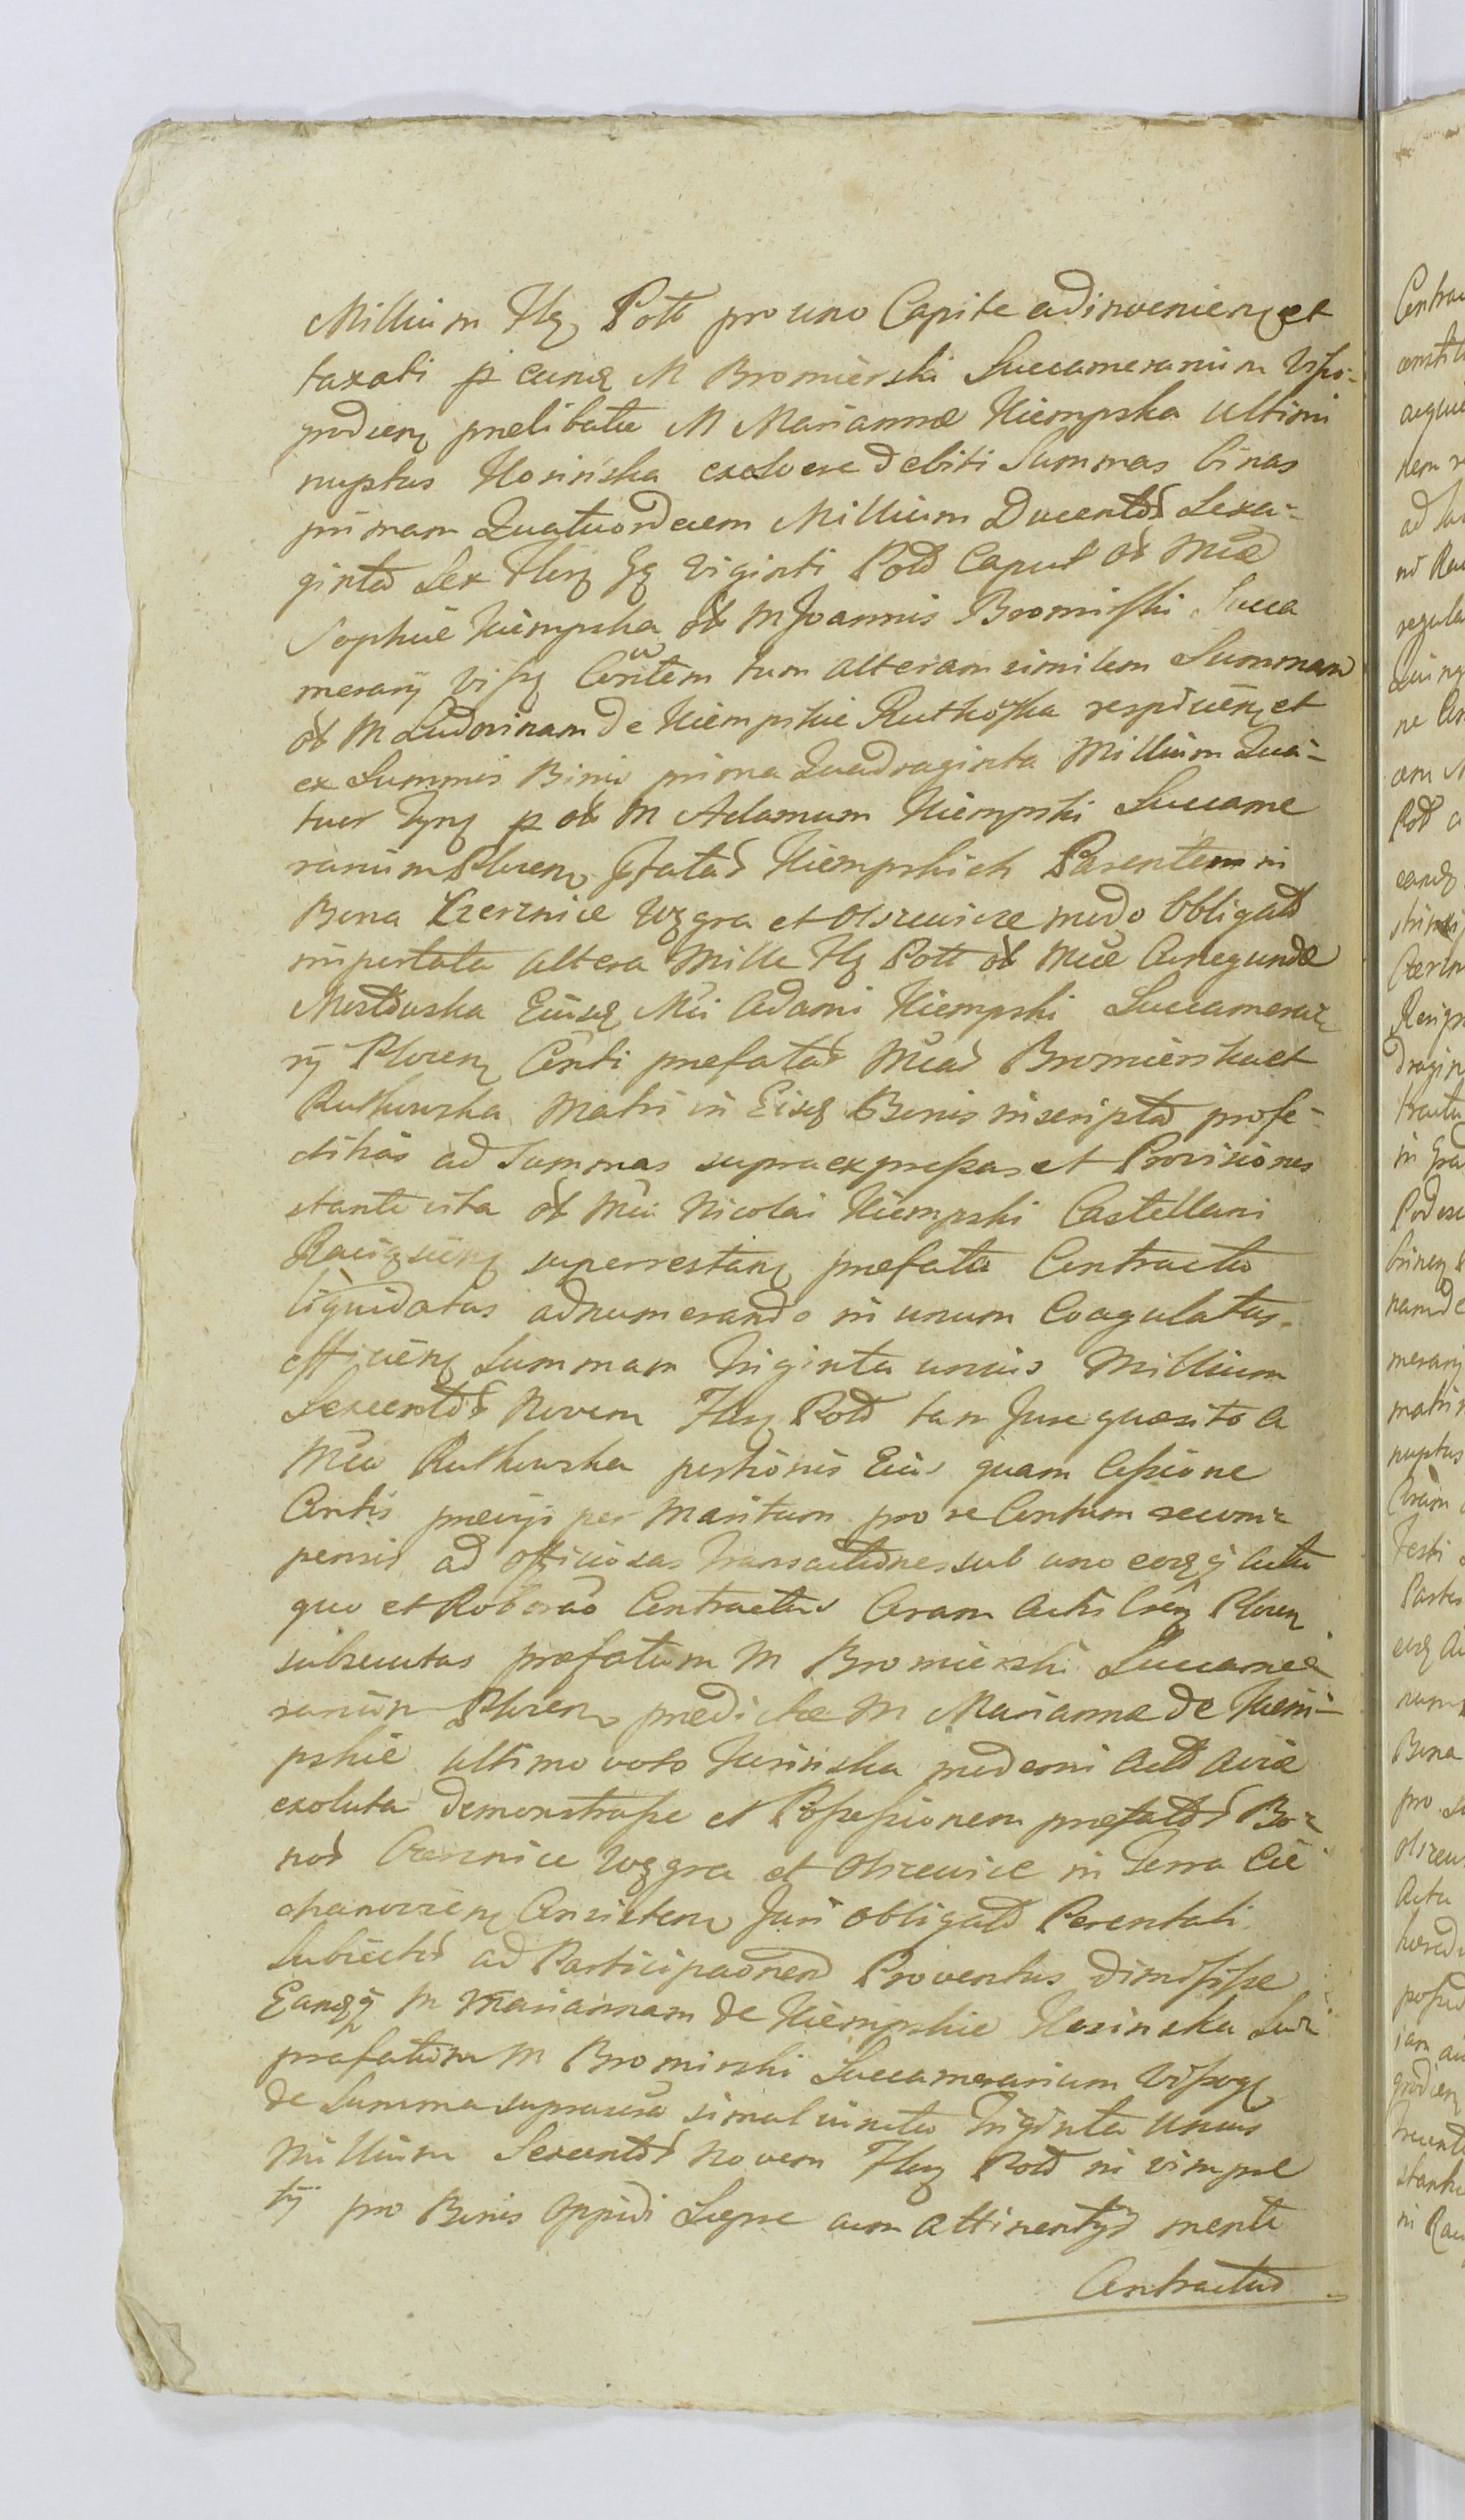 Millium Flg Poll pro uno Capite adinvenieng et
taxati p eundg M Bromierski Succamerarium Viſo-
grodieng prælibatæ M Mariannæ Kiempska ultimi
nuptus Kosińska exolvere debiti Summas binas
primam Quatuordecem Millium Ducentor Sexa-
ginta Sex Flug Gg Viginti Poll Caput ob Mcæ
Sophiæ Kiempska ob M Joannis Bromirski Succa
merarij Viſg Contem tum alteram similem Summam
ob M Ludovinam de Kiempskie Rutkoſka respicieng et
ex Summis Binis prima Quadraginta Millium Qua-
tuor Tynf p ob M Adamum Kiempski Succame
rarium Ploceng Pfatar Kiempskich Parentem in
Bona Czernice Węgra et Olszewice modo Obligato
importata altera Mille Flg Poll ob Mcæ Cunegundæ
Mostowska Eiusdg Mci Adami Kiempski Succamera-
rij Ploceng Conti præfatar Mcar Bromierska et
Rutkowska Matri in Eisdg Bonis inscripta profe-
ctitias ad Summas supra expreſsas et Provisiones
stante vita ob Mci Nicolai Kiempski Castellani
Raciązieng superrestang præfata Contractu
liquidatas adnumerando in unum Coagulatas
efficieng Summam Triginta unius Millium
Sexcentor Novem Flug Poll tam Jure quæsito a
Mca Rutkowska portionis Eius quam Ceſsione
Contis prævijs per Maritum pro se Contum recom-
pensis ad officiosas Transactiones sub uno eodgq actu
quo et Roborao Contractus Coram Actis Csrg Plocen
subsecutas præfatum M Bromierski Succame
rarium Ploceng prædictæ M Mariannæ de Kiem-
pskie ultimo voto Kosińska moderni Acto Aviæ
exoluta demonstraſse et Poſseſsionem præfator Bo-
nor Czernice Węgra et Olszewice in Terra Cie
chanovieng Consisteng Juri obligato Parentali
Subiector ad Participaonem Proventus dimiſiſse
Eandgq M Mariannam de Kiempskie Kosinska Su-
præfatum M Bromirski Succamerarium Viſsog
de Summa suprascra simul iuncta Triginta Unius
Millium Sexcentor Novem Flug Poll in vim pre
tij pro Bonis Oppidi Siepre cum attinentijs mente
Contractus